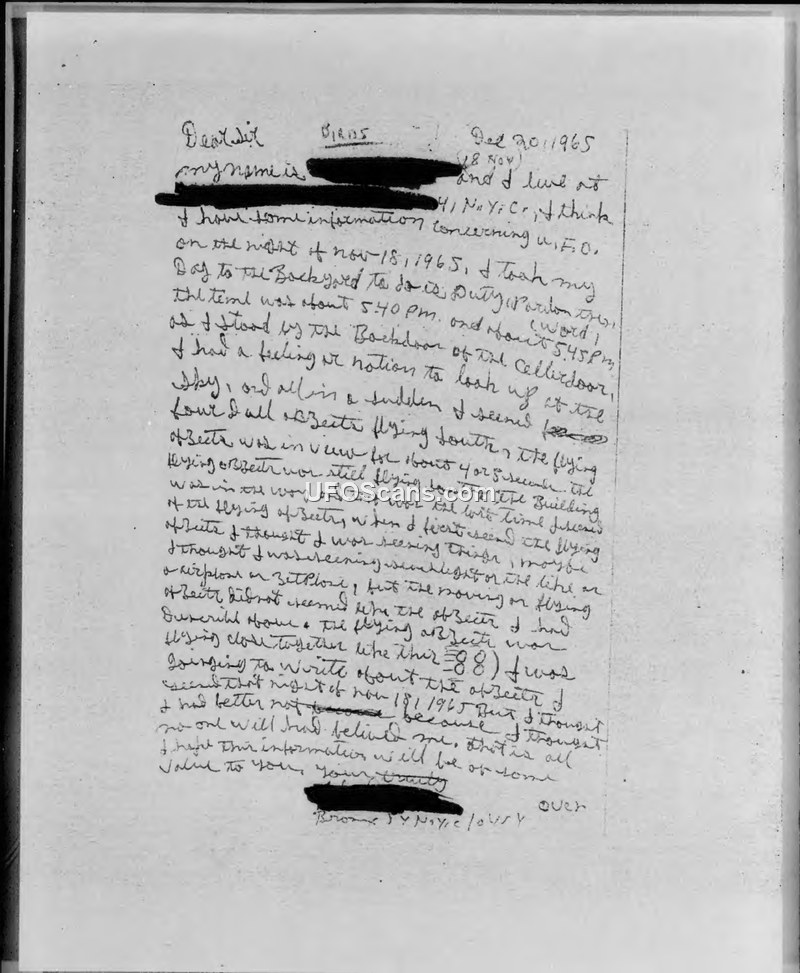 Dear Sir BIRDS Dec 20, 1965
(18 Nov)
my name is and I live at
41 N.Y.C., I think
I have some information concerning U.F.O.
on the night of nov-18, 1965, I took my
Dog to the Backyard to do is Duty (Pardon the
(word)
the time was about 5:40 Pm. and about 5:45 Pm,
as I stood by the Backdoor of the Cellerdoor,
I had a feeling or notion to look up at the
sky, and all in a sudden I seened
four Ball obZects flying South, the flying
obZects was in view for about 4 or 5 seconds. the
flying obZects wor still flying South the Building
was in the way was the last time I seened
of the flying obZects, when I first seend the flying
obZects I thought I was seeing things, maybe
I thought I was seening searchlight or the like or
a airplane or ZetPlane, but the moving or flying
obZects did not seemed like the obZects I had
Describe above. the flying obZects wor
flying close together like this 88) I was
goinging to write about the obZects I
seened that night of nov 18, 1965 But I thought
I had better not because I thought
no one will had belived me. that is all
I hope this information will be of some
value to you, your truely
over
Bronx N.Y.C 10454
UFOScans.com